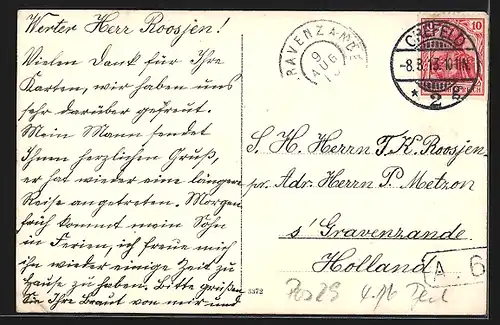 Werter Herr Roosjen!
Vielen Dank für Ihre
Karten, wir haben uns
sehr darüber gefreut.
Mein Mann sendet
Ihnen herzlichen Gruß,
er hat wieder eine längere
Reise angetreten. Morgen
früh kommt mein Sohn
in Ferien, ich freue mich
ihn wieder einige Zeit zu
Hause zu haben. Bitte grüßen
Sie Ihre Braut von mir und
'S GRAVENZANDE
9
AUG
CREFELD
-8.8.13. 10-11N.
* 2
10
S. H. Herrn T. K. Roosjen
pr. Adr. Herrn P. Metzon
s'Gravenzande
Holland
A. 6
3372